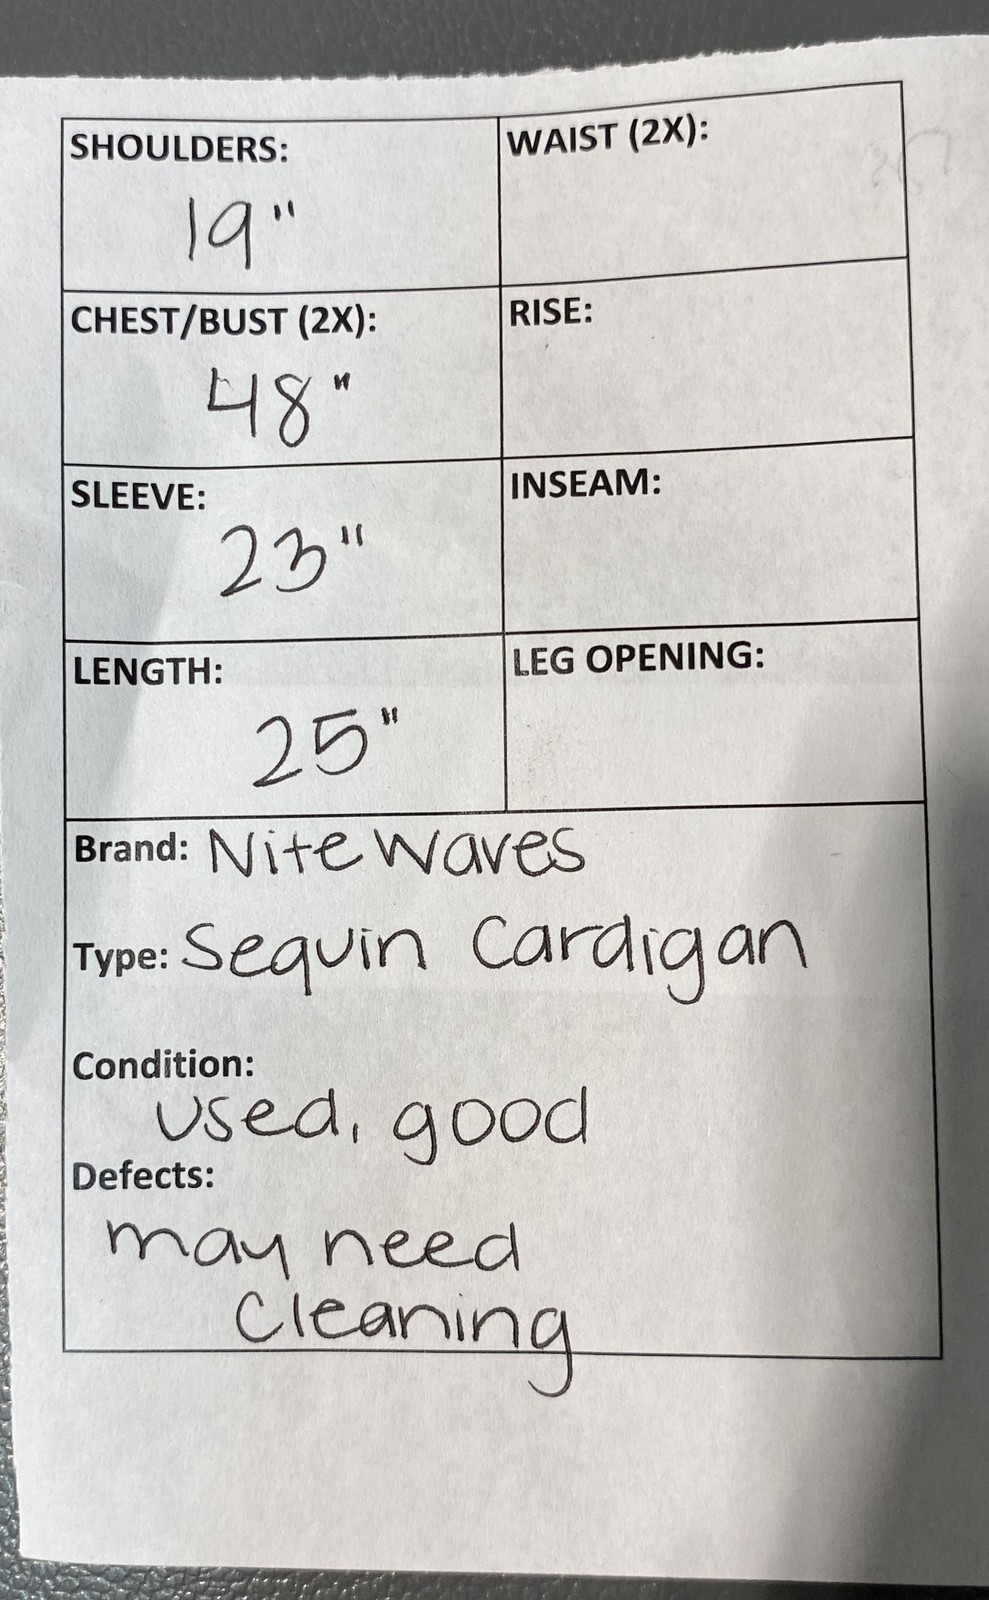 SHOULDERS:
19"
WAIST (2X):
CHEST/BUST (2X):
48"
RISE:
SLEEVE:
23"
INSEAM:
LENGTH:
25"
LEG OPENING:
Brand: Nite Waves
Type: Sequin Cardigan
Condition:
used, good
Defects:
may need
Cleaning